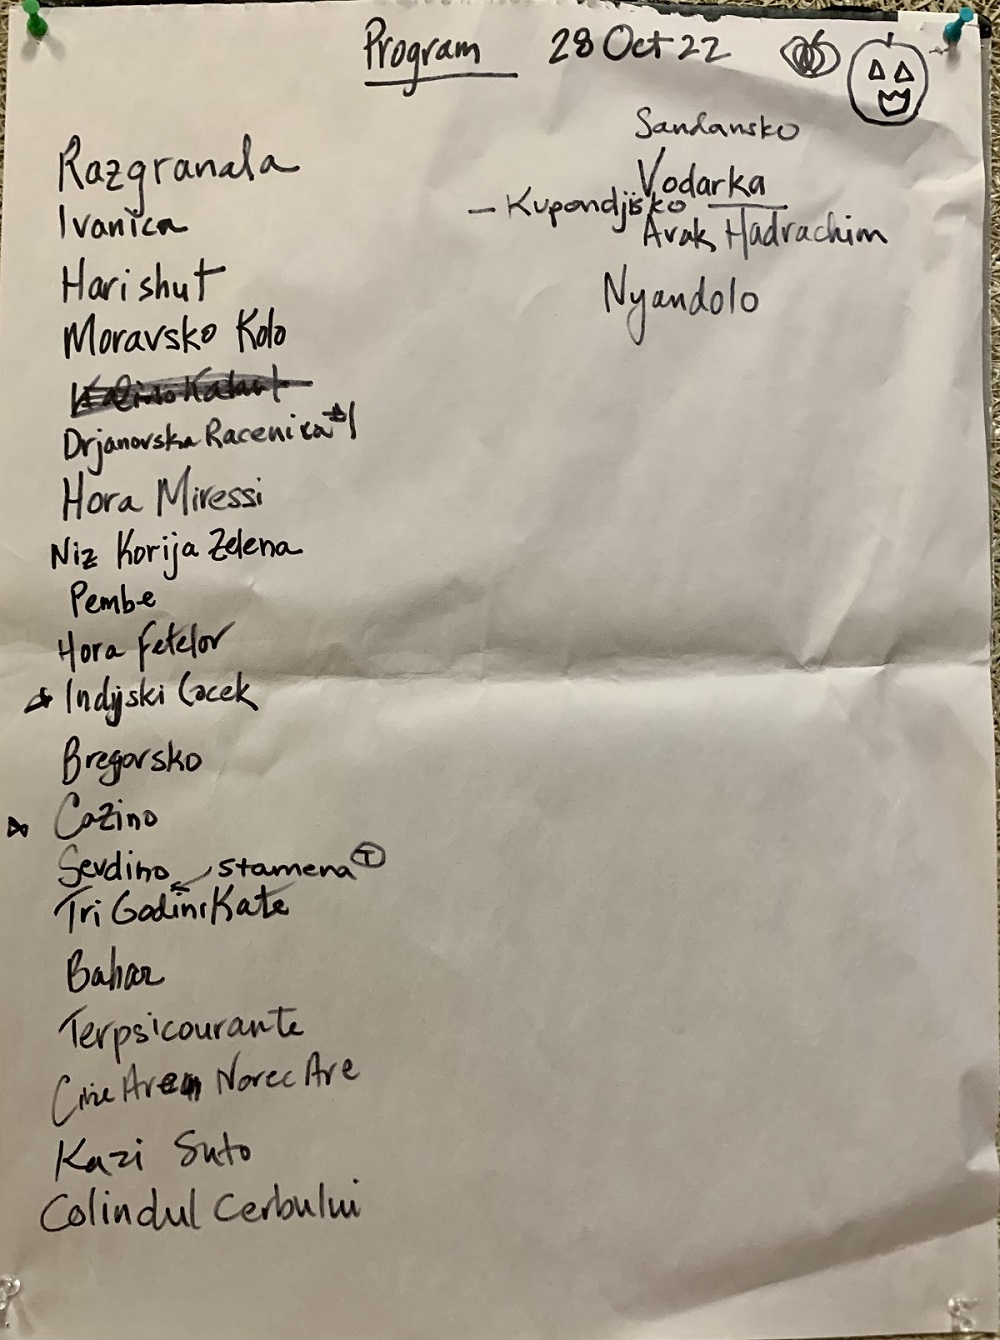 Program 28 Oct 22
Razgranala
Ivanica
Harishut
Moravsko Kolo
Drjanovska Racenica #1
Hora Miressi
Niz Korija Zelena
Pembe
Hora Fetelor
Indijski Cocek
Bregovsko
Cazino
Sevdino Stamena T
Tri Godini Kate
Bahar
Terpsicourante
Cine Are Noroc Are
Kazi Suto
Colindul Cerbului
Sandansko
Vodarka
– Kupondjisko
Arak Hadrachim
Nyandolo